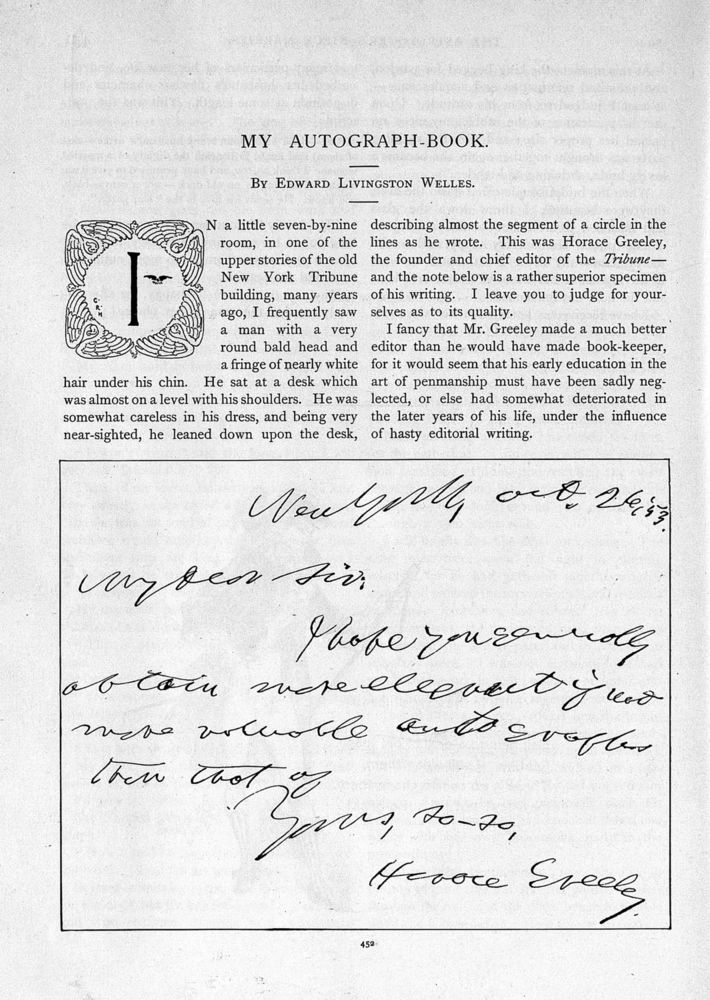 MY AUTOGRAPH-BOOK.
BY EDWARD LIVINGSTON WELLES.
IN a little seven-by-nine
room, in one of the
upper stories of the old
New York Tribune
building, many years
ago, I frequently saw
a man with a very
round bald head and
a fringe of nearly white
hair under his chin. He sat at a desk which
was almost on a level with his shoulders. He was
somewhat careless in his dress, and being very
near-sighted, he leaned down upon the desk,
describing almost the segment of a circle in the
lines as he wrote. This was Horace Greeley,
the founder and chief editor of the Tribune—
and the note below is a rather superior specimen
of his writing. I leave you to judge for your-
selves as to its quality.
I fancy that Mr. Greeley made a much better
editor than he would have made book-keeper,
for it would seem that his early education in the
art of penmanship must have been sadly neg-
lected, or else had somewhat deteriorated in
the later years of his life, under the influence
of hasty editorial writing.
New York, Oct. 26, '53.
My Dear Sir:
I hope you generally
obtain more elegant if not
more valuable autographs
than that of
Yours, so-so,
Horace Greeley.
452